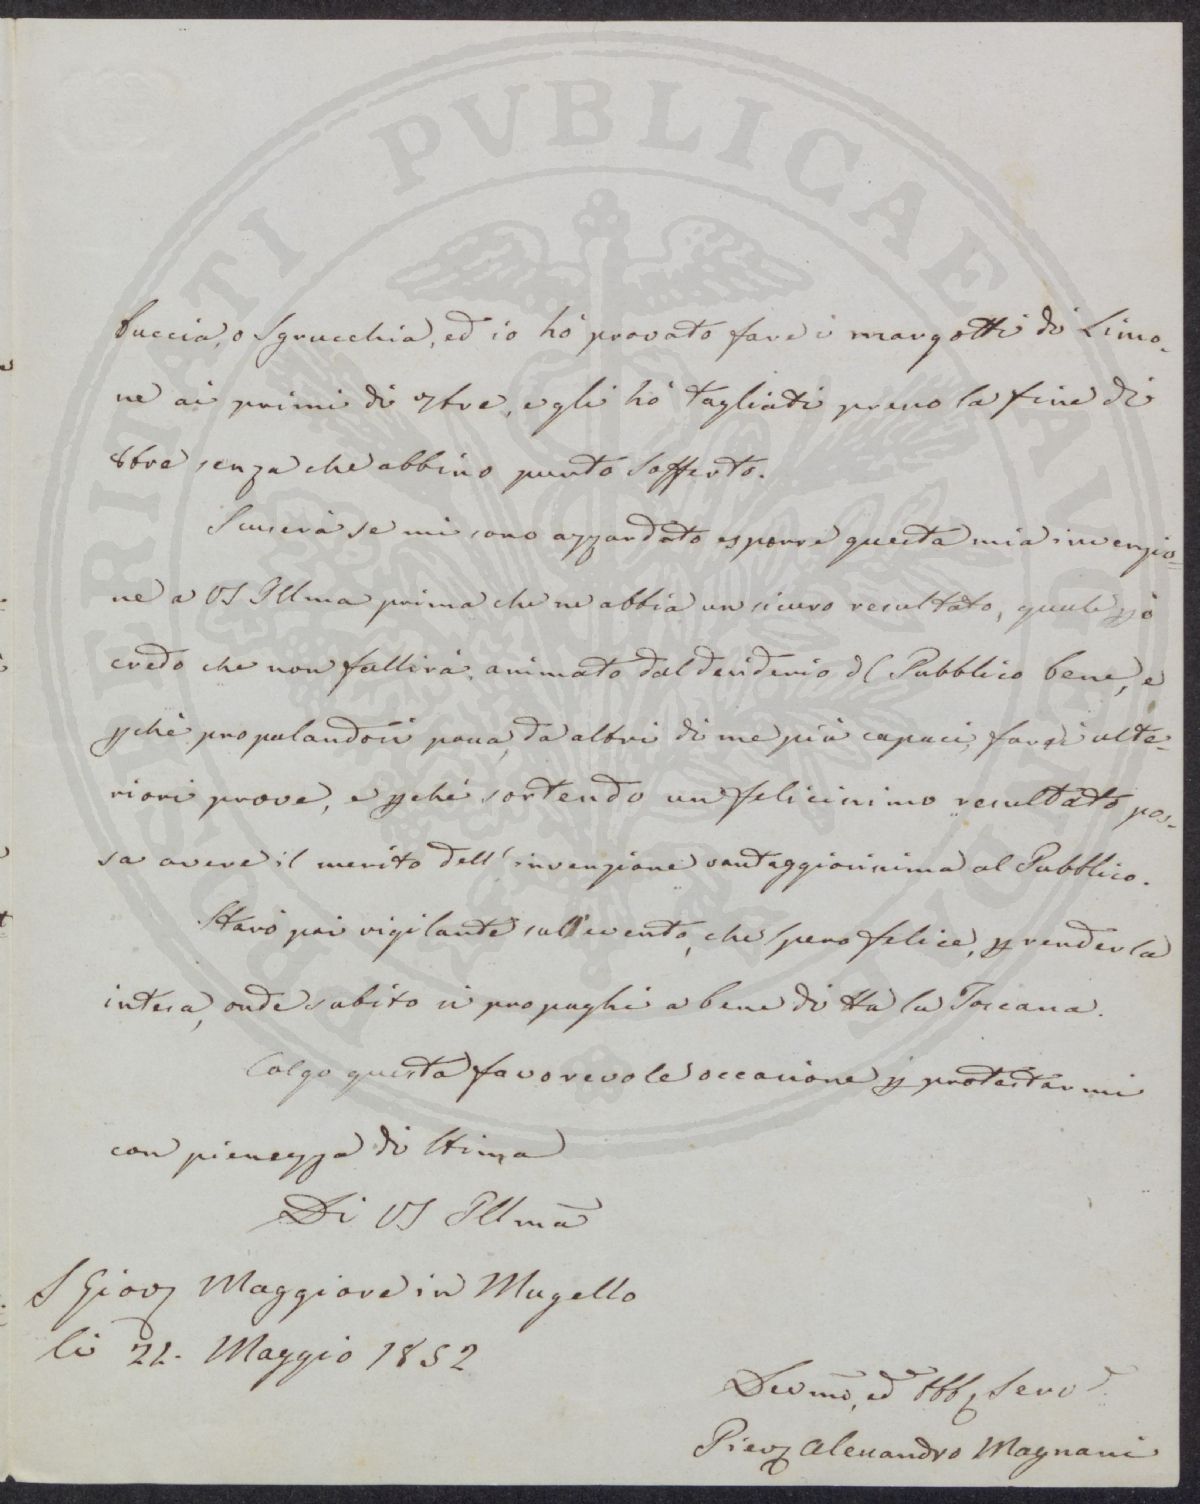 PROSPERITATI PVBLICAE AVGENDAE
buccia, o Sgrucchia, ed io hò provato fare i margotti di Limo-
ne ai primi di 7bre, e gli hò tagliati presso la fine di
8bre senza che abbino punto sofferto.
Scuserà se mi sono azzardato esporre questa mia invenzio-
ne a VS Illma prima che ne abbia un sicuro resultato, quale però
credo che non fallirà, animato dal desiderio del Pubblico bene, e
pchè propalandosi possa, da altri di me più capaci, farsi ulte-
riori prove, e pchè sortendo un felicissimo resultato pos-
sa avere il merito dell'invenzione vantaggiosissima al Pubblico.
Starò poi vigilante sull'evento, che spero felice, p renderla
intesa, onde subito si propaghi a bene di tta la Toscana.
Colgo questa favorevole occasione p protestarmi
con pienezza di stima
Di VS Illma
S Giov Maggiore in Mugello
li 22. Maggio 1852
Devmo, ed Obb Serv
Pier Alessandro Magnani